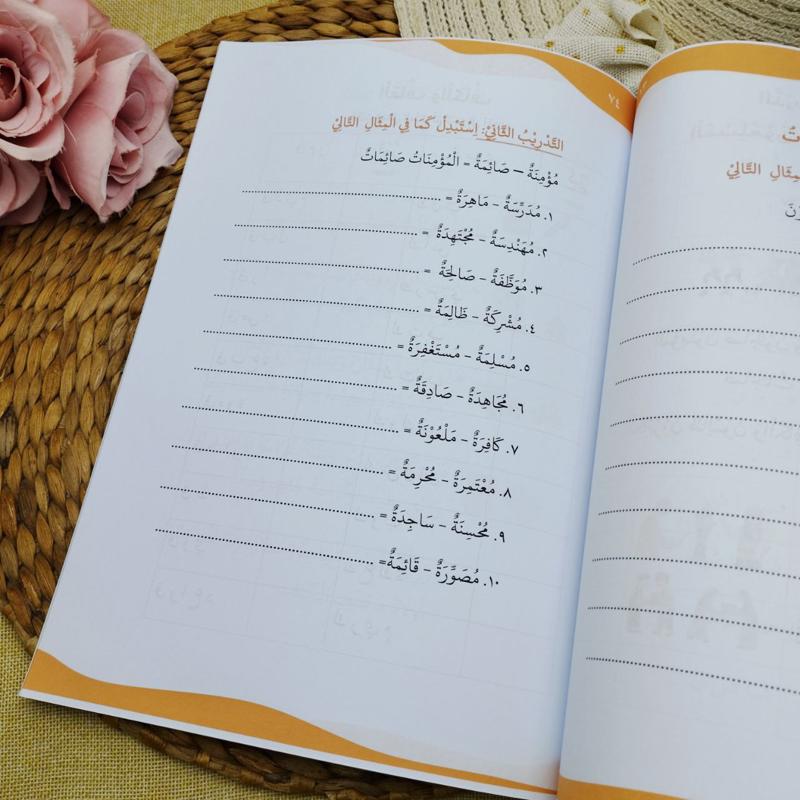 ٧٤
التَّدْرِيْبُ الثَّانِيْ: اِسْتَبْدِلْ كَمَا فِي الْمِثَالِ التَّالِيْ
مُؤْمِنَةٌ – صَائِمَةٌ = الْمُؤْمِنَاتُ صَائِمَاتٌ
١. مُدَرِّسَةٌ – مَاهِرَةٌ = ........
٢. مُهَنْدِسَةٌ – مُجْتَهِدَةٌ = ........
٣. مُوَظَّفَةٌ – صَالِحَةٌ = ........
٤. مُشْرِكَةٌ – ظَالِمَةٌ = ........
٥. مُسْلِمَةٌ – مُسْتَغْفِرَةٌ = ........
٦. مُجَاهِدَةٌ – صَادِقَةٌ = ........
٧. كَافِرَةٌ – مَلْعُوْنَةٌ = ........
٨. مُعْتَمِرَةٌ – مُحْرِمَةٌ = ........
٩. مُحْسِنَةٌ – سَاجِدَةٌ = ........
١٠. مُصَوِّرَةٌ – قَائِمَةٌ = ........
التَّالِيْ